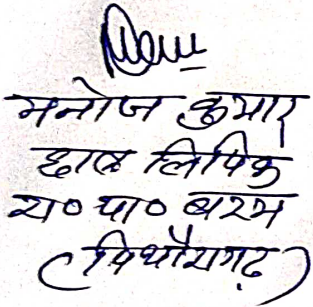 मनोज कुमार
हाल लिपिक
रा० पा० बरम
(पिथौरागढ़)